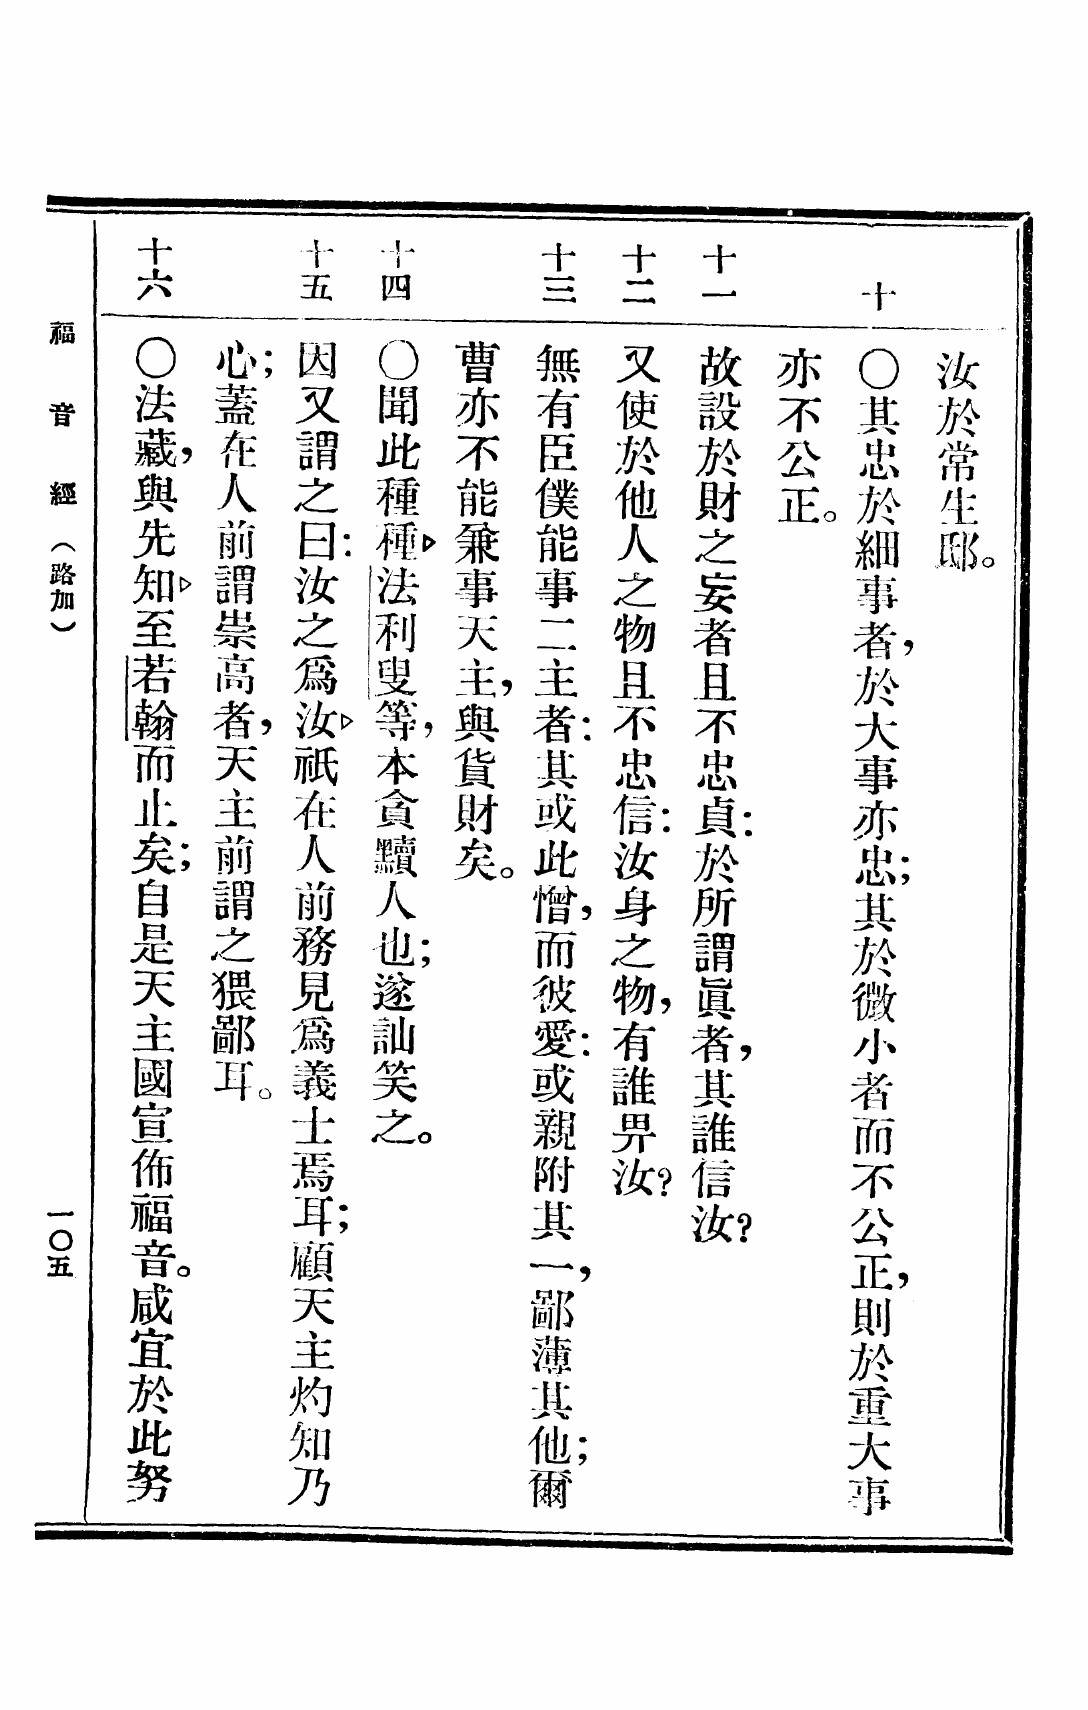 汝於常生邸。
十
〇其忠於細事者，於大事亦忠；其於微小者而不公正，則於重大事
亦不公正。
十一
故設於財之妄者且不忠貞：於所謂眞者，其誰信汝？
十二
又使於他人之物且不忠信：汝身之物，有誰畀汝？
十三
無有臣僕能事二主者：其或此憎，而彼愛：或親附其一，鄙薄其他；爾
曹亦不能兼事天主，與貨財矣。
十四
〇聞此種種▷法利叟等，本貪黷人也；遂訕笑之。
十五
因又謂之曰：汝之爲汝▷祇在人前務見爲義士焉耳；顧天主灼知乃
心；蓋在人前謂崇高者，天主前謂之猥鄙耳。
十六
〇法藏，與先知▷至若翰而止矣；自是天主國宣佈福音。咸宜於此努
福音經（路加）
一〇五